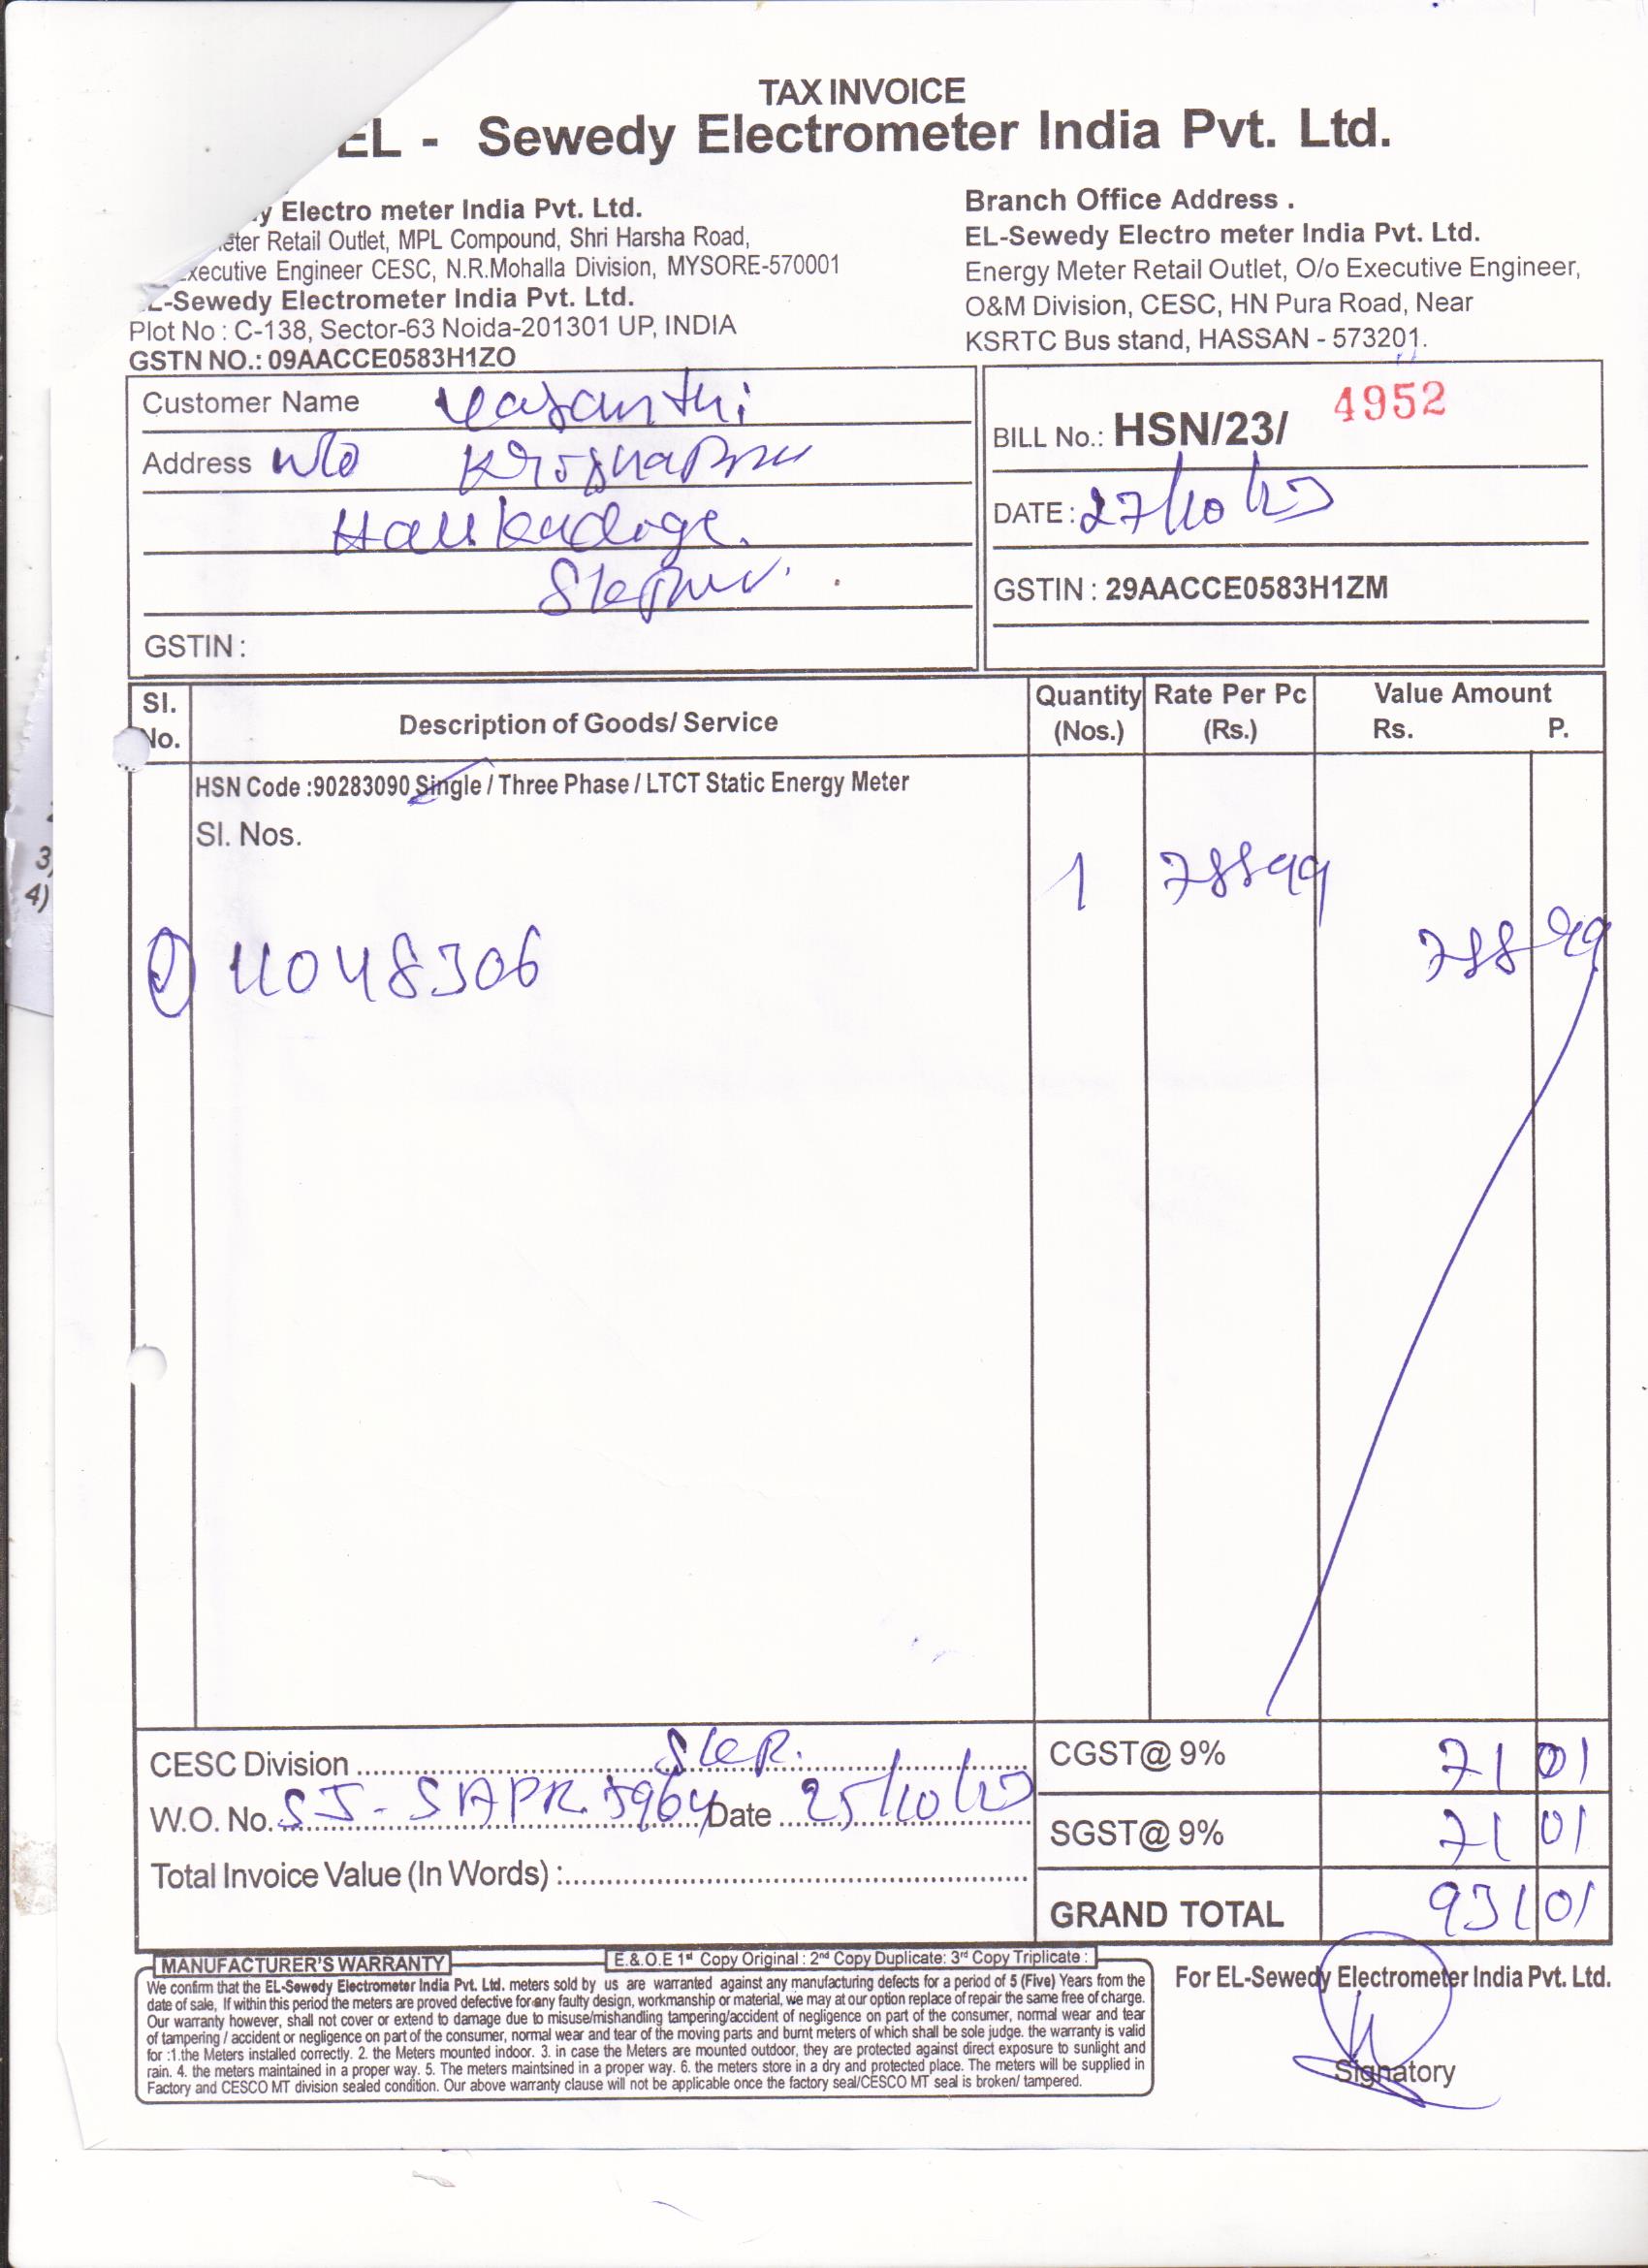 TAX INVOICE
EL - Sewedy Electrometer India Pvt. Ltd.
Electro meter India Pvt. Ltd.
Retail Outlet, MPL Compound, Shri Harsha Road,
Engineer CESC, N.R.Mohalla Division, MYSORE-570001
EL-Sewedy Electrometer India Pvt. Ltd.
Plot No : C-138, Sector-63 Noida-201301 UP, INDIA
GSTN NO.: 09AACCE0583H1ZO
Branch Office Address .
EL-Sewedy Electro meter India Pvt. Ltd.
Energy Meter Retail Outlet, O/o Executive Engineer,
O&M Division, CESC, HN Pura Road, Near
KSRTC Bus stand, HASSAN - 573201.
Customer Name Vasanthi
Address w/o
GSTIN :
BILL No.: HSN/23/ 4952
DATE : 27/10/23
GSTIN : 29AACCE0583H1ZM
Sl. No. Description of Goods/ Service Quantity (Nos.) Rate Per Pc (Rs.) Value Amount Rs. P.
HSN Code :90283090 Single / Three Phase / LTCT Static Energy Meter
Sl. Nos.
1 788 99
11048306 788 99
CESC Division SKP.
W.O. No. SJ-SAPR 5964 Date 25/10/23
Total Invoice Value (In Words) :
CGST@ 9% 71 01
SGST@ 9% 71 01
GRAND TOTAL 931 01
MANUFACTURER'S WARRANTY
E.& O.E 1st Copy Original : 2nd Copy Duplicate: 3rd Copy Triplicate :
We confirm that the EL-Sewedy Electrometer India Pvt. Ltd. meters sold by us are warranted against any manufacturing defects for a period of 5 (Five) Years from the
date of sale, If within this period the meters are proved defective for any faulty design, workmanship or material, we may at our option replace of repair the same free of charge.
Our warranty however, shall not cover or extend to damage due to misuse/mishandling tampering/accident of negligence on part of the consumer, normal wear and tear
of tampering / accident or negligence on part of the consumer, normal wear and tear of the moving parts and burnt meters of which shall be sole judge. the warranty is valid
for :1.the Meters installed correctly. 2. the Meters mounted indoor. 3. in case the Meters are mounted outdoor, they are protected against direct exposure to sunlight and
rain. 4. the meters maintained in a proper way. 5. The meters maintsined in a proper way. 6. the meters store in a dry and protected place. The meters will be supplied in
Factory and CESCO MT division sealed condition. Our above warranty clause will not be applicable once the factory seal/CESCO MT seal is broken/ tampered.
For EL-Sewedy Electrometer India Pvt. Ltd.
Signatory
3)
4)